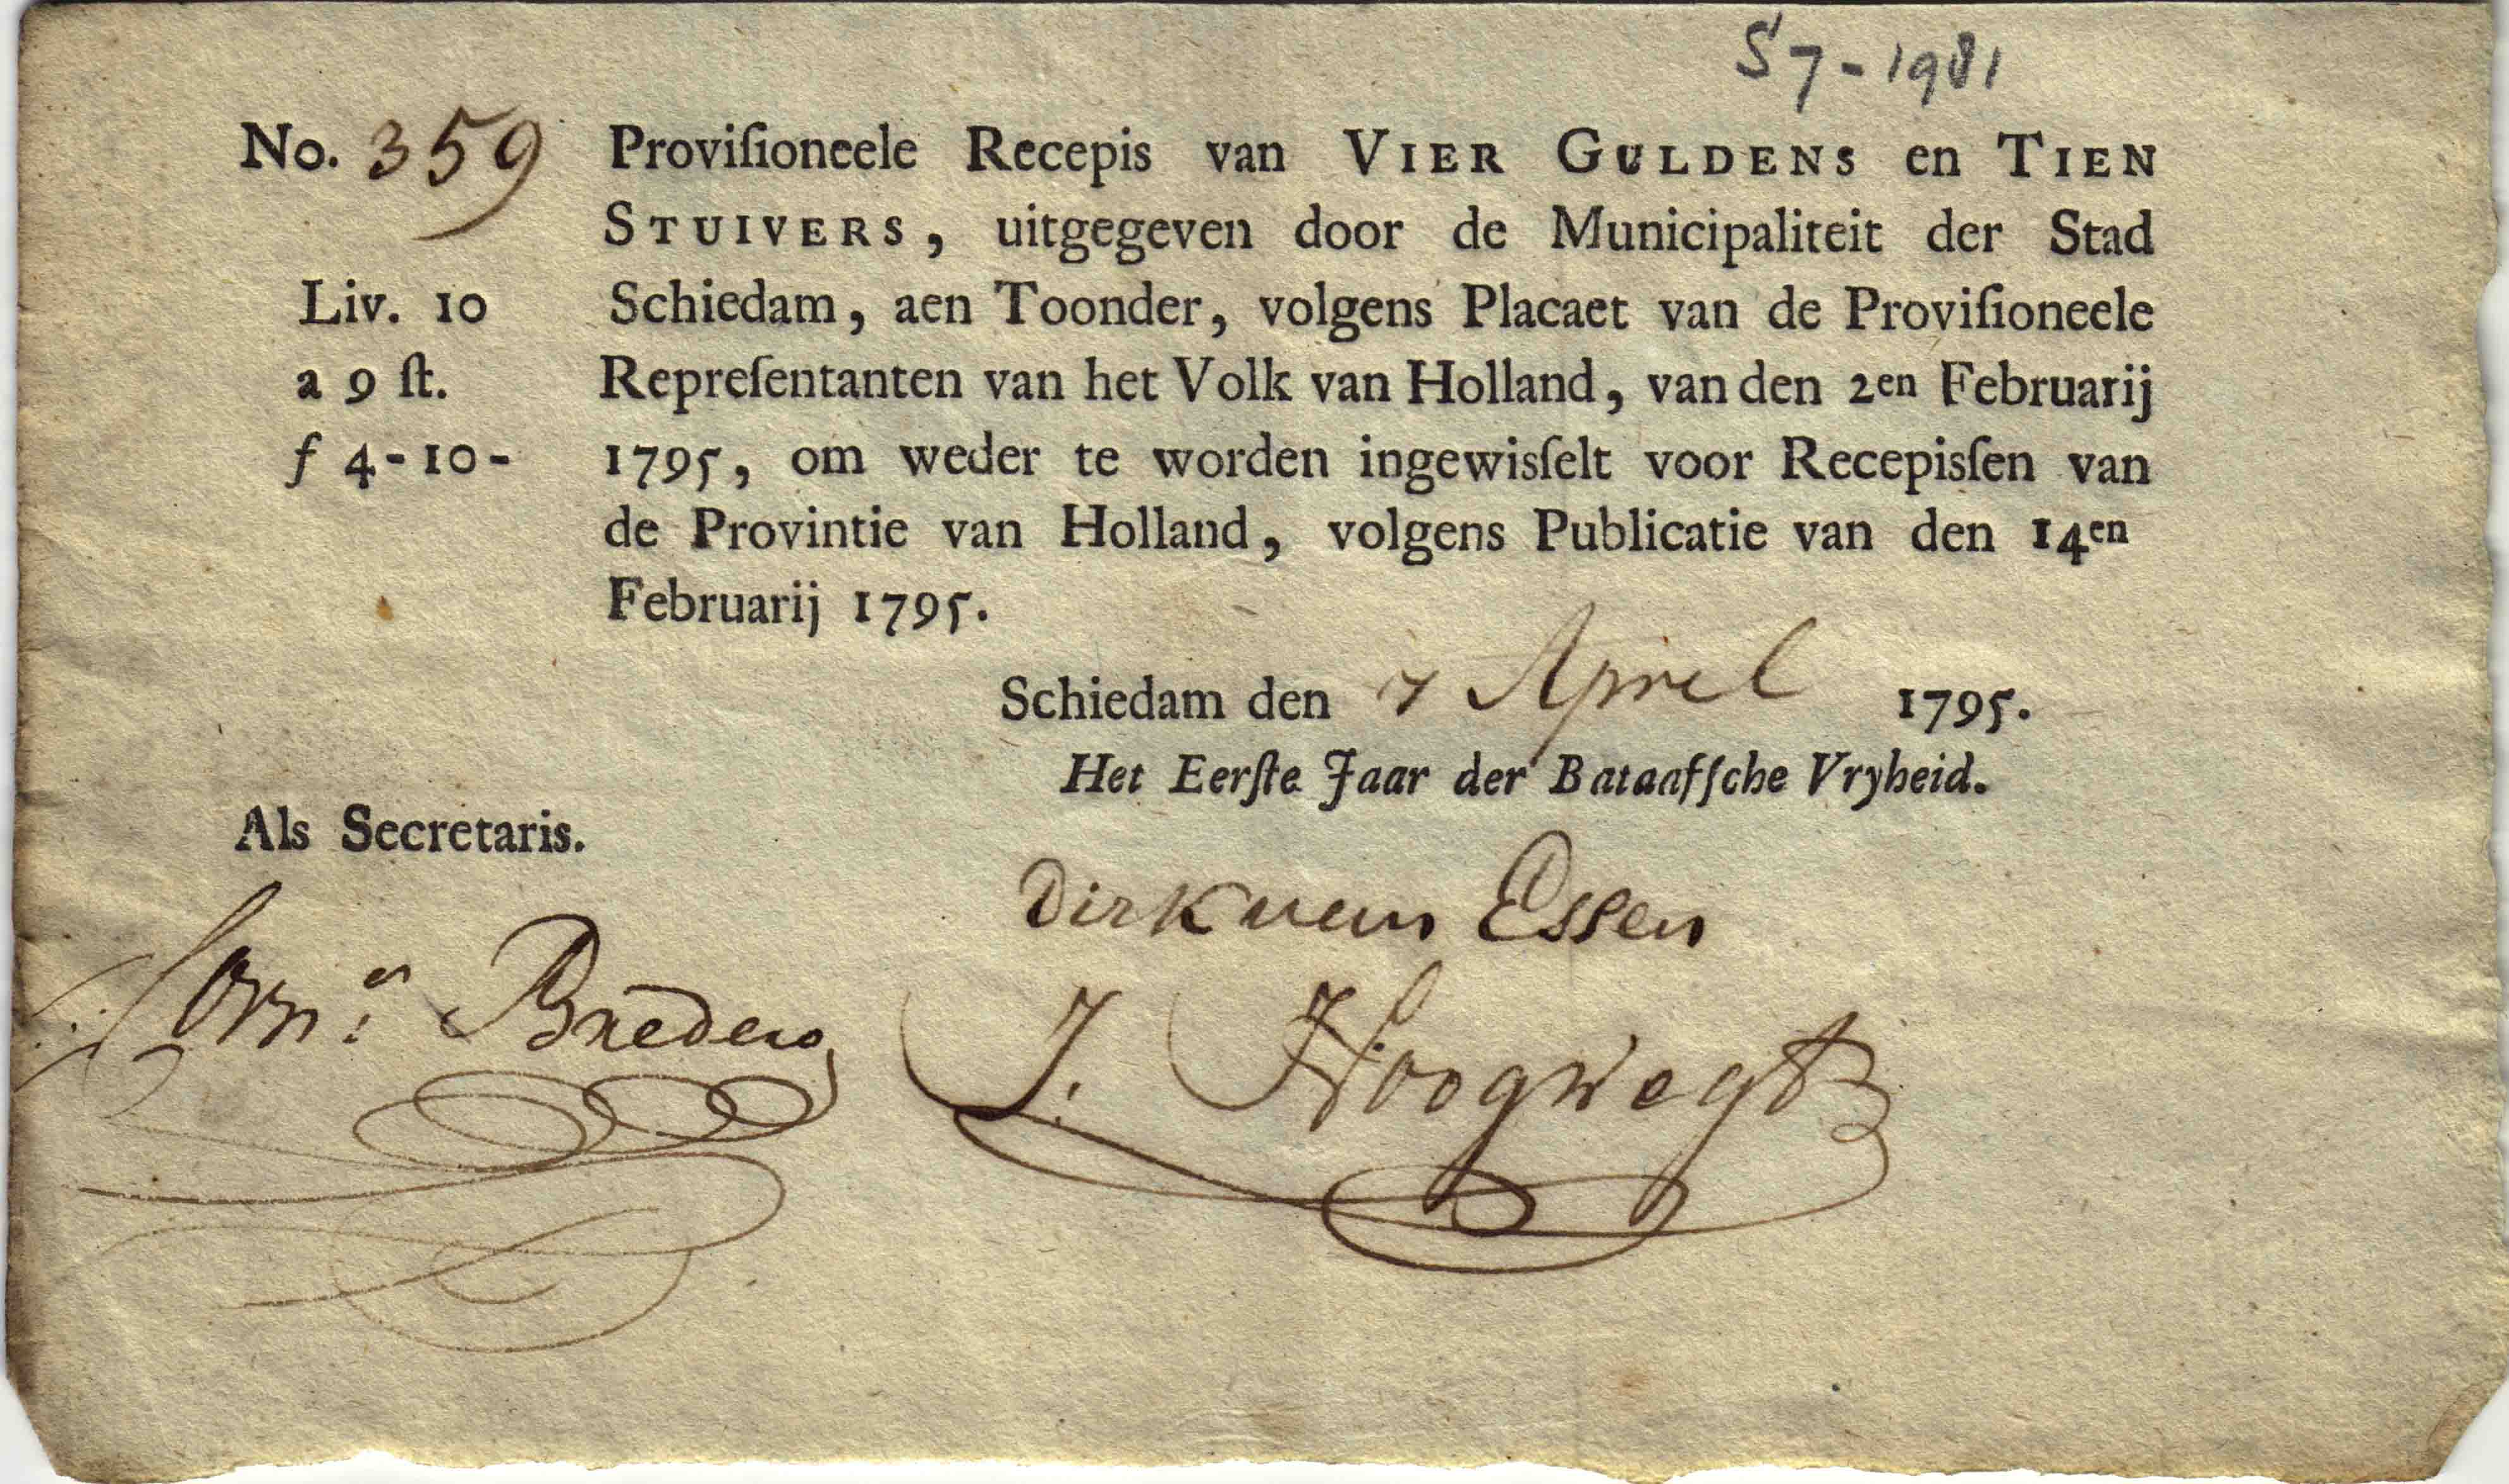 S7-1981
No. 359 Proviſioneele Recepis van VIER GULDENS en TIEN
STUIVERS, uitgegeven door de Municipaliteit der Stad
Liv. 10 Schiedam, aen Toonder, volgens Placaet van de Proviſioneele
a 9 ſt. Repreſentanten van het Volk van Holland, van den 2en Februarij
f 4-10- 1795, om weder te worden ingewisſelt voor Recepisſen van
de Provintie van Holland, volgens Publicatie van den 14en
Februarij 1795.
Schiedam den 7 April 1795.
Het Eerſte Jaar der Bataafſche Vryheid.
Als Secretaris.
Dirk van Essen
Corn:s Bredero
J. Hoogwegt